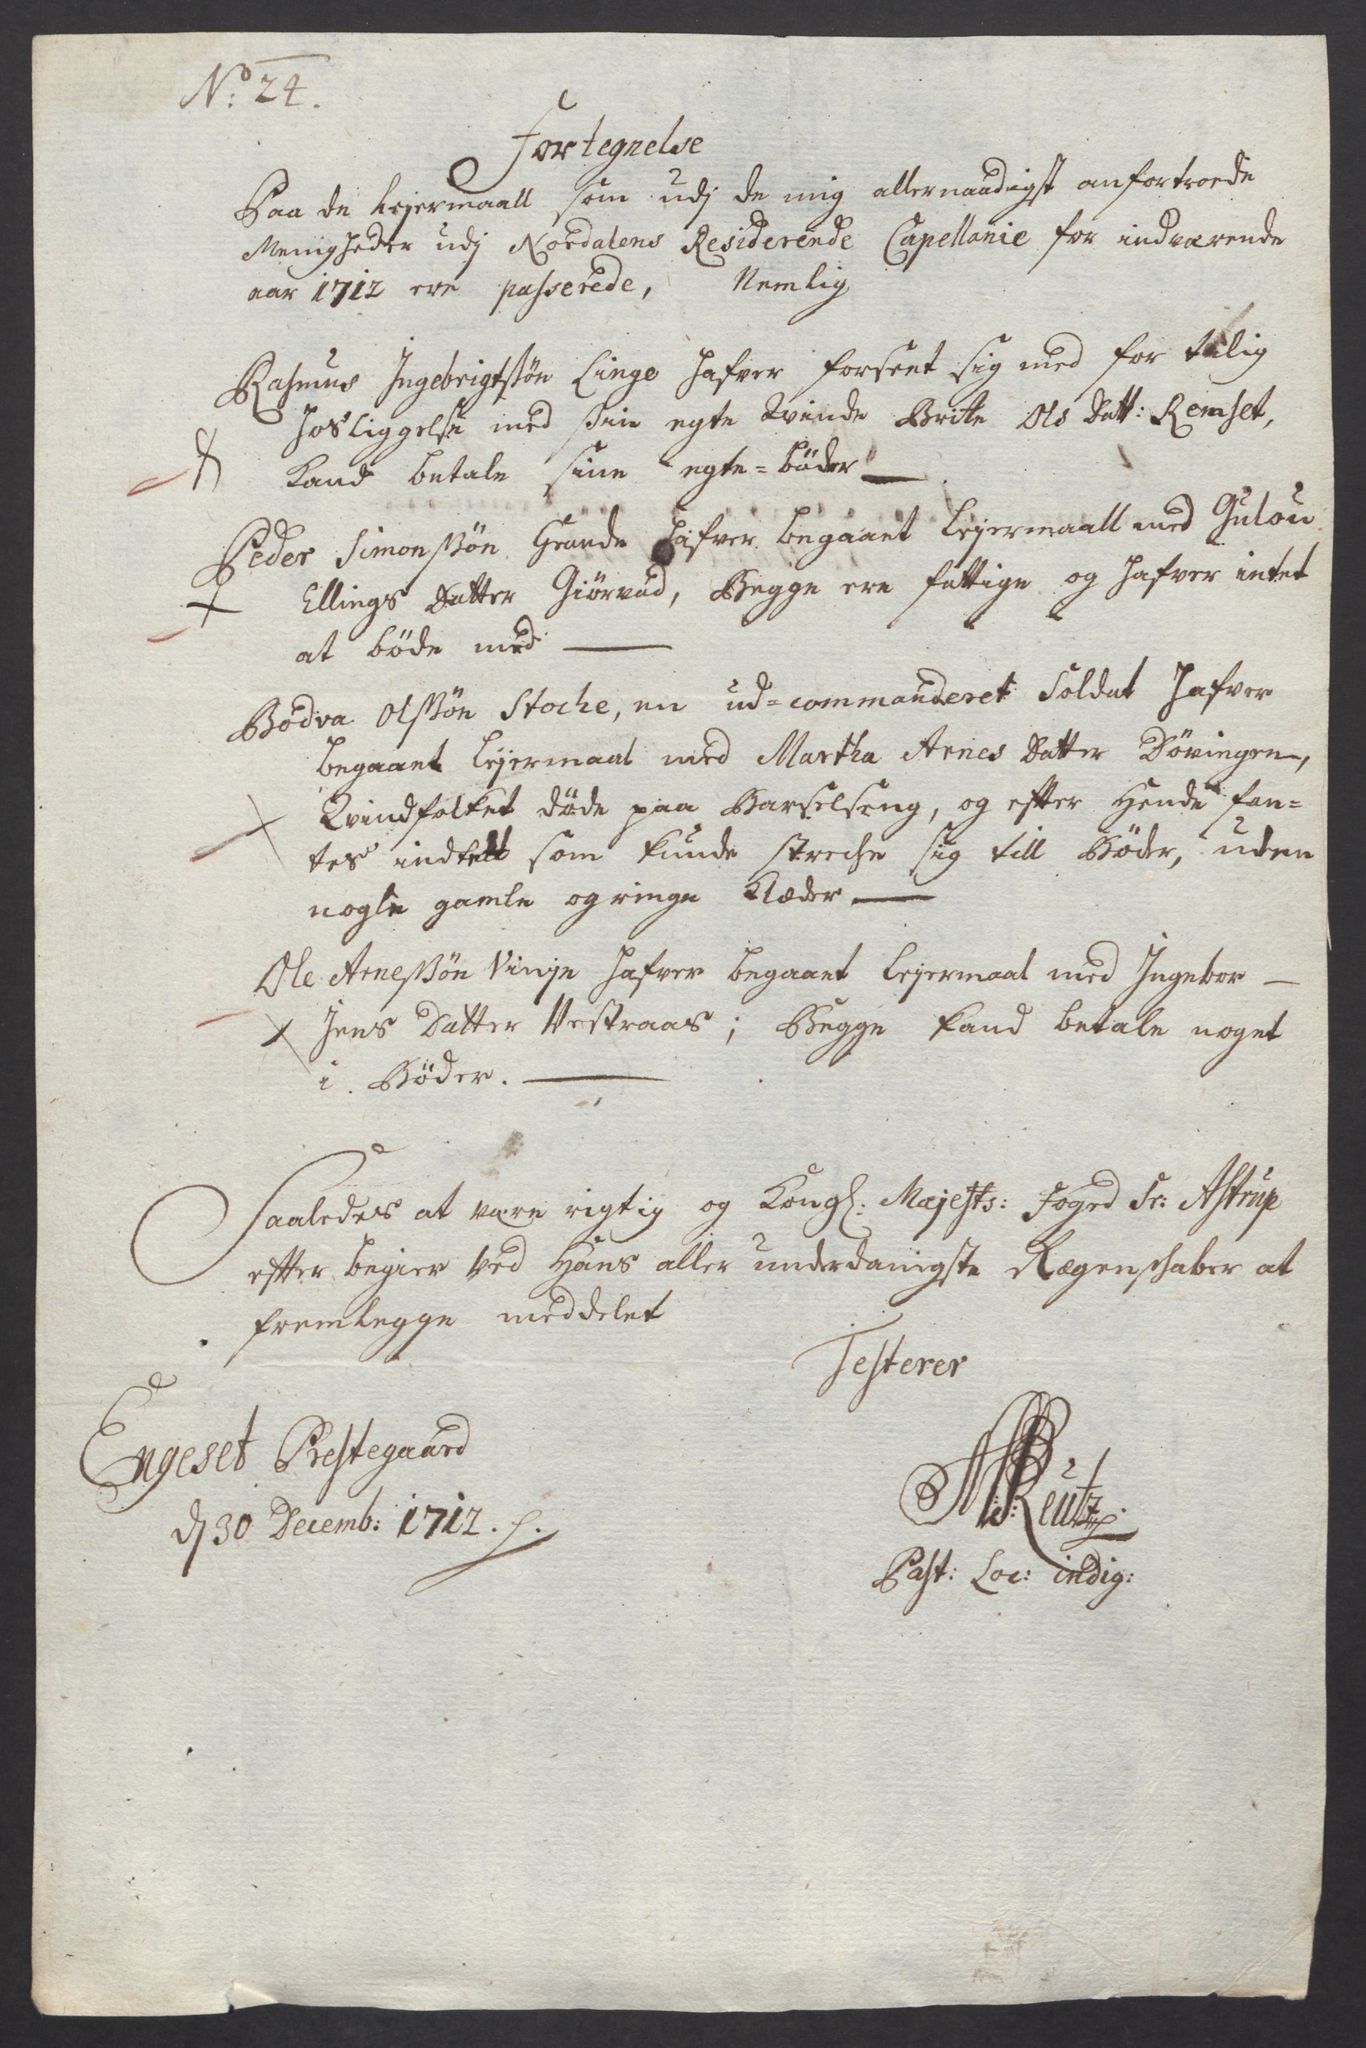 No: 24.
Fortegnelse
Paa de Lejermaall som udj de mig allernaadigst anfortroede
Menigheder udj Nordalens Residerende Capellanie for indværende
aar 1712 ere passerede, Nemlig
Rasmus Ingebrigtssön Linge hafver forseet sig med for tilig
Hosliggelse med sin egte Qvinde Brite Ols Datt: Remset,
kand betale sine egte=böder
Peder Simonssön Grande hafver begaaet Lejermaall med Gulou
Ellings Datter Giörvad, Begge ere fattige og hafver intet
at böde med
Bodva Olssön Stoche, en ud=commanderet Soldat hafver
begaaet Lejermaal med Martha Arnes Datter Dövingen,
Qvindfolket döde paa Barselseng, og efter Hende fan=
tes indtelt som kunde streche sig till Böder, uden
nogle gamle og ringe Klæder
Ole Arnessön Vinje hafver begaaet Lejermaal med Ingebor
Jens Datter Vestraas; Begge kand betale noget
i Böder.
Saaledes at være rigtig og Kongl: Majests: Foged Sr: Astrup
efter begier ved Hans aller underdanigste Rægenskaber at
fremlegge meddelet
Testerer
Engeset Prestegaard
dj 30 Decemb: 1712.
Reutz
Past: Loc: indig: